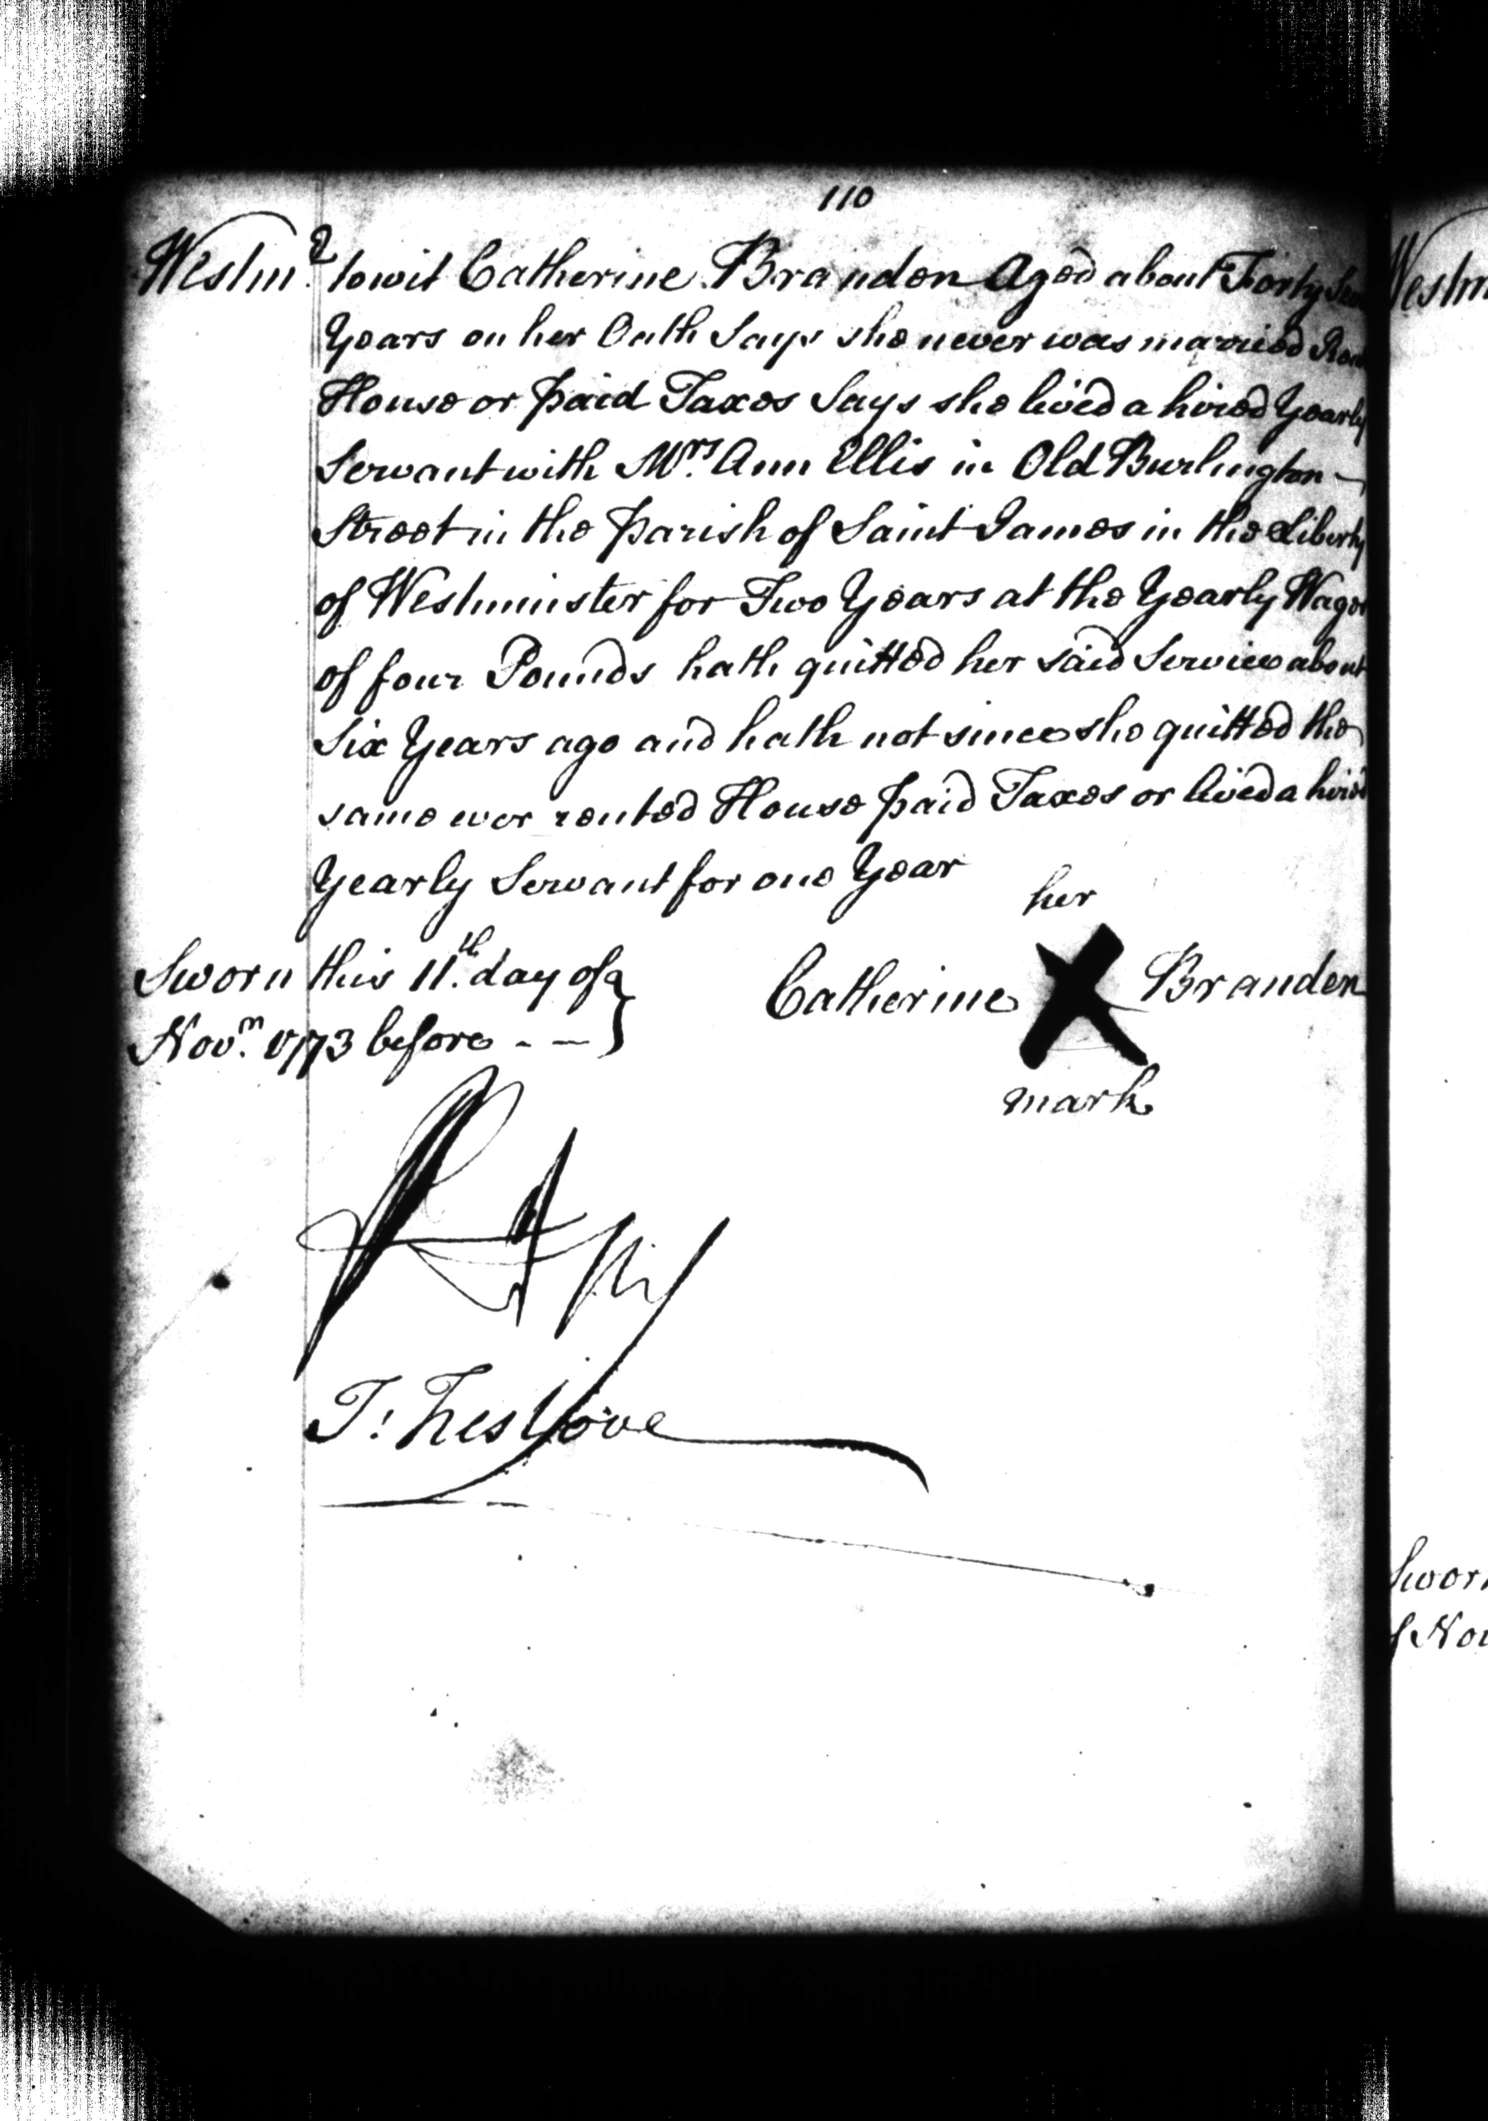 110
Westmr. to wit Catherine Branden Aged about Forty
Years on her Oath Says she never was married
House or paid Taxes Says she lived a hired Yearly
Servant with Mrs. Ann Ellis in Old Burlington
Street in the Parish of Saint James in the Liberty
of Westminster for Two Years at the Yearly Wages
of four Pounds hath quitted her said Service about
Six Years ago and hath not since she quitted the
same ever rented House paid Taxes or lived a hired
Yearly Servant for one Year
her
Sworn this 11.th day of Catherine X Branden
Novm. 1773 before - -
mark
Westm
Sworn
Nov